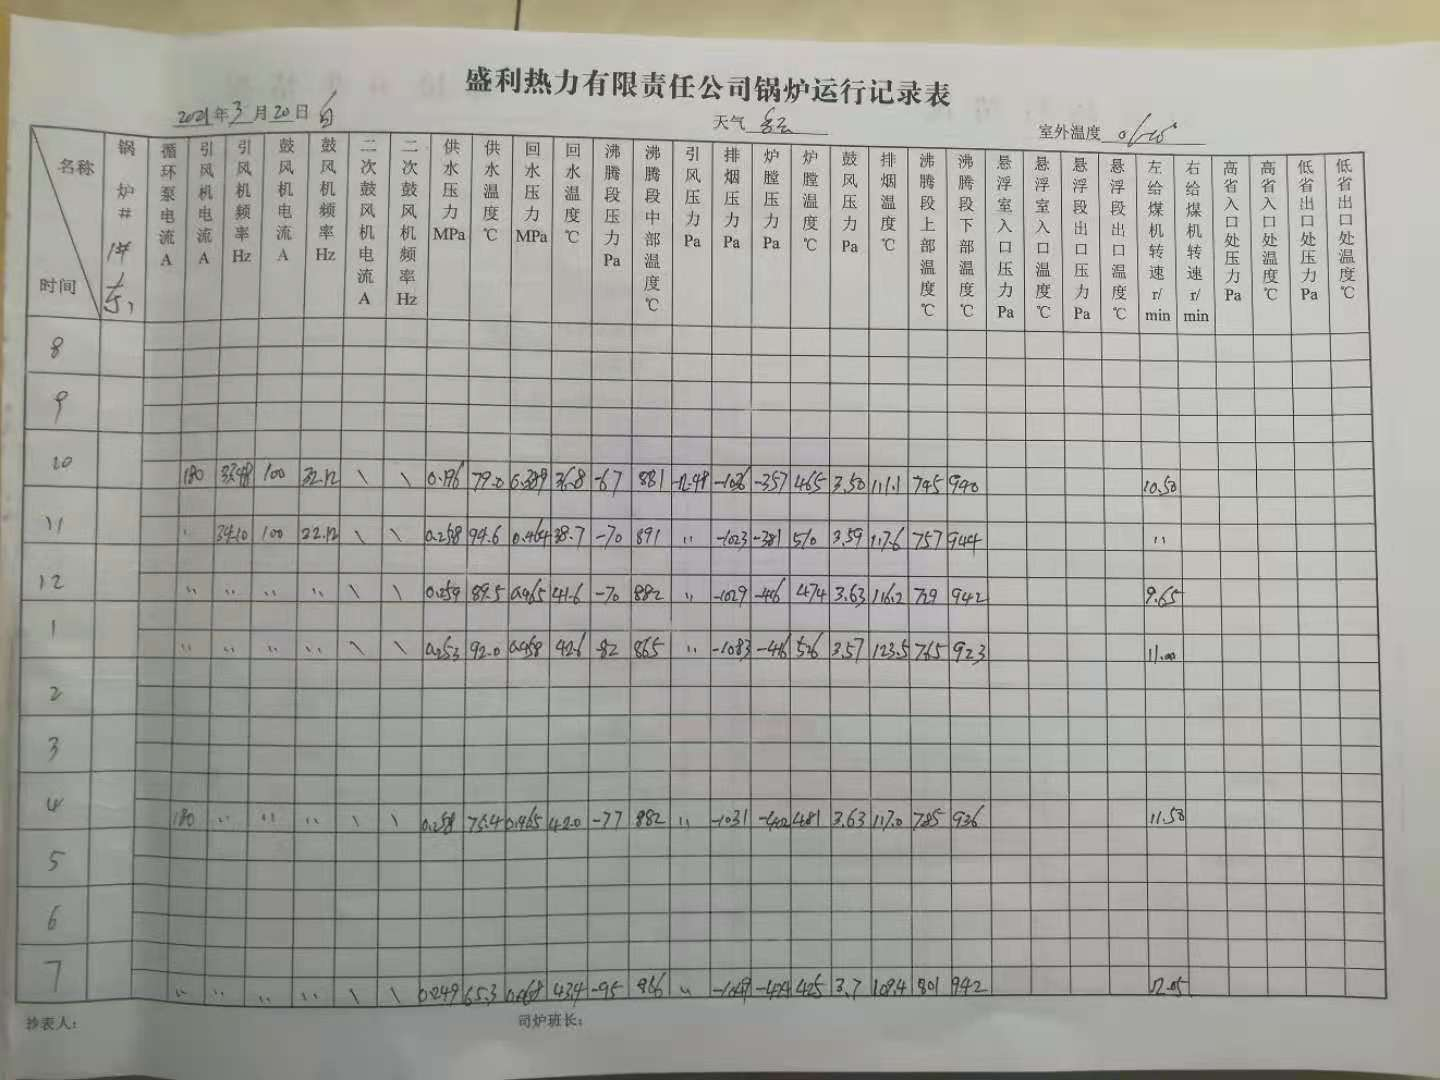 盛利热力有限责任公司锅炉运行记录表
2021年3月20日 白 天气 室外温度
名称 时间 锅炉# 1# 循环泵电流A 引风机电流A 引风机频率Hz 鼓风机电流A 鼓风机频率Hz 二次鼓风机电流A 二次鼓风机频率Hz 供水压力MPa 供水温度℃ 回水压力MPa 回水温度℃ 沸腾段压力Pa 沸腾段中部温度℃ 引风压力Pa 排烟压力Pa 炉膛压力Pa 炉膛温度℃ 鼓风压力Pa 排烟温度℃ 沸腾段上部温度℃ 沸腾段下部温度℃ 悬浮室入口压力Pa 悬浮室入口温度℃ 悬浮段出口压力Pa 悬浮段出口温度℃ 左给煤机转速r/min 右给煤机转速r/min 高省入口处压力Pa 高省入口处温度℃ 低省出口处压力Pa 低省出口处温度℃
8
9
10 180 33.98 100 32.12 \ \ 0.196 79.0 0.389 36.8 -67 881 -12.49 -1036 -357 465 3.50 111.1 745 940 10.50
11 34.10 100 22.12 \ \ 0.258 94.6 0.464 38.7 -70 891 〃 -1023 -381 510 3.59 117.6 757 944 〃
12 〃 〃 〃 〃 \ \ 0.259 89.5 0.465 41.6 -70 882 〃 -1029 474 3.63 116.2 729 942 9.65
1 〃 〃 〃 〃 \ \ 0.253 92.0 0.458 42.6 -82 865 〃 -1083 526 3.57 123.5 765 923 11.00
2
3
4 180 〃 〃 〃 \ \ 0.258 75.4 0.465 42.0 -77 882 〃 -1031 481 3.63 117.0 785 936 11.50
5
6
7 〃 〃 〃 〃 \ \ 0.249 65.3 43.4 -95 〃 425 3.7 109.4 801 942 12.05
抄表人： 司炉班长：